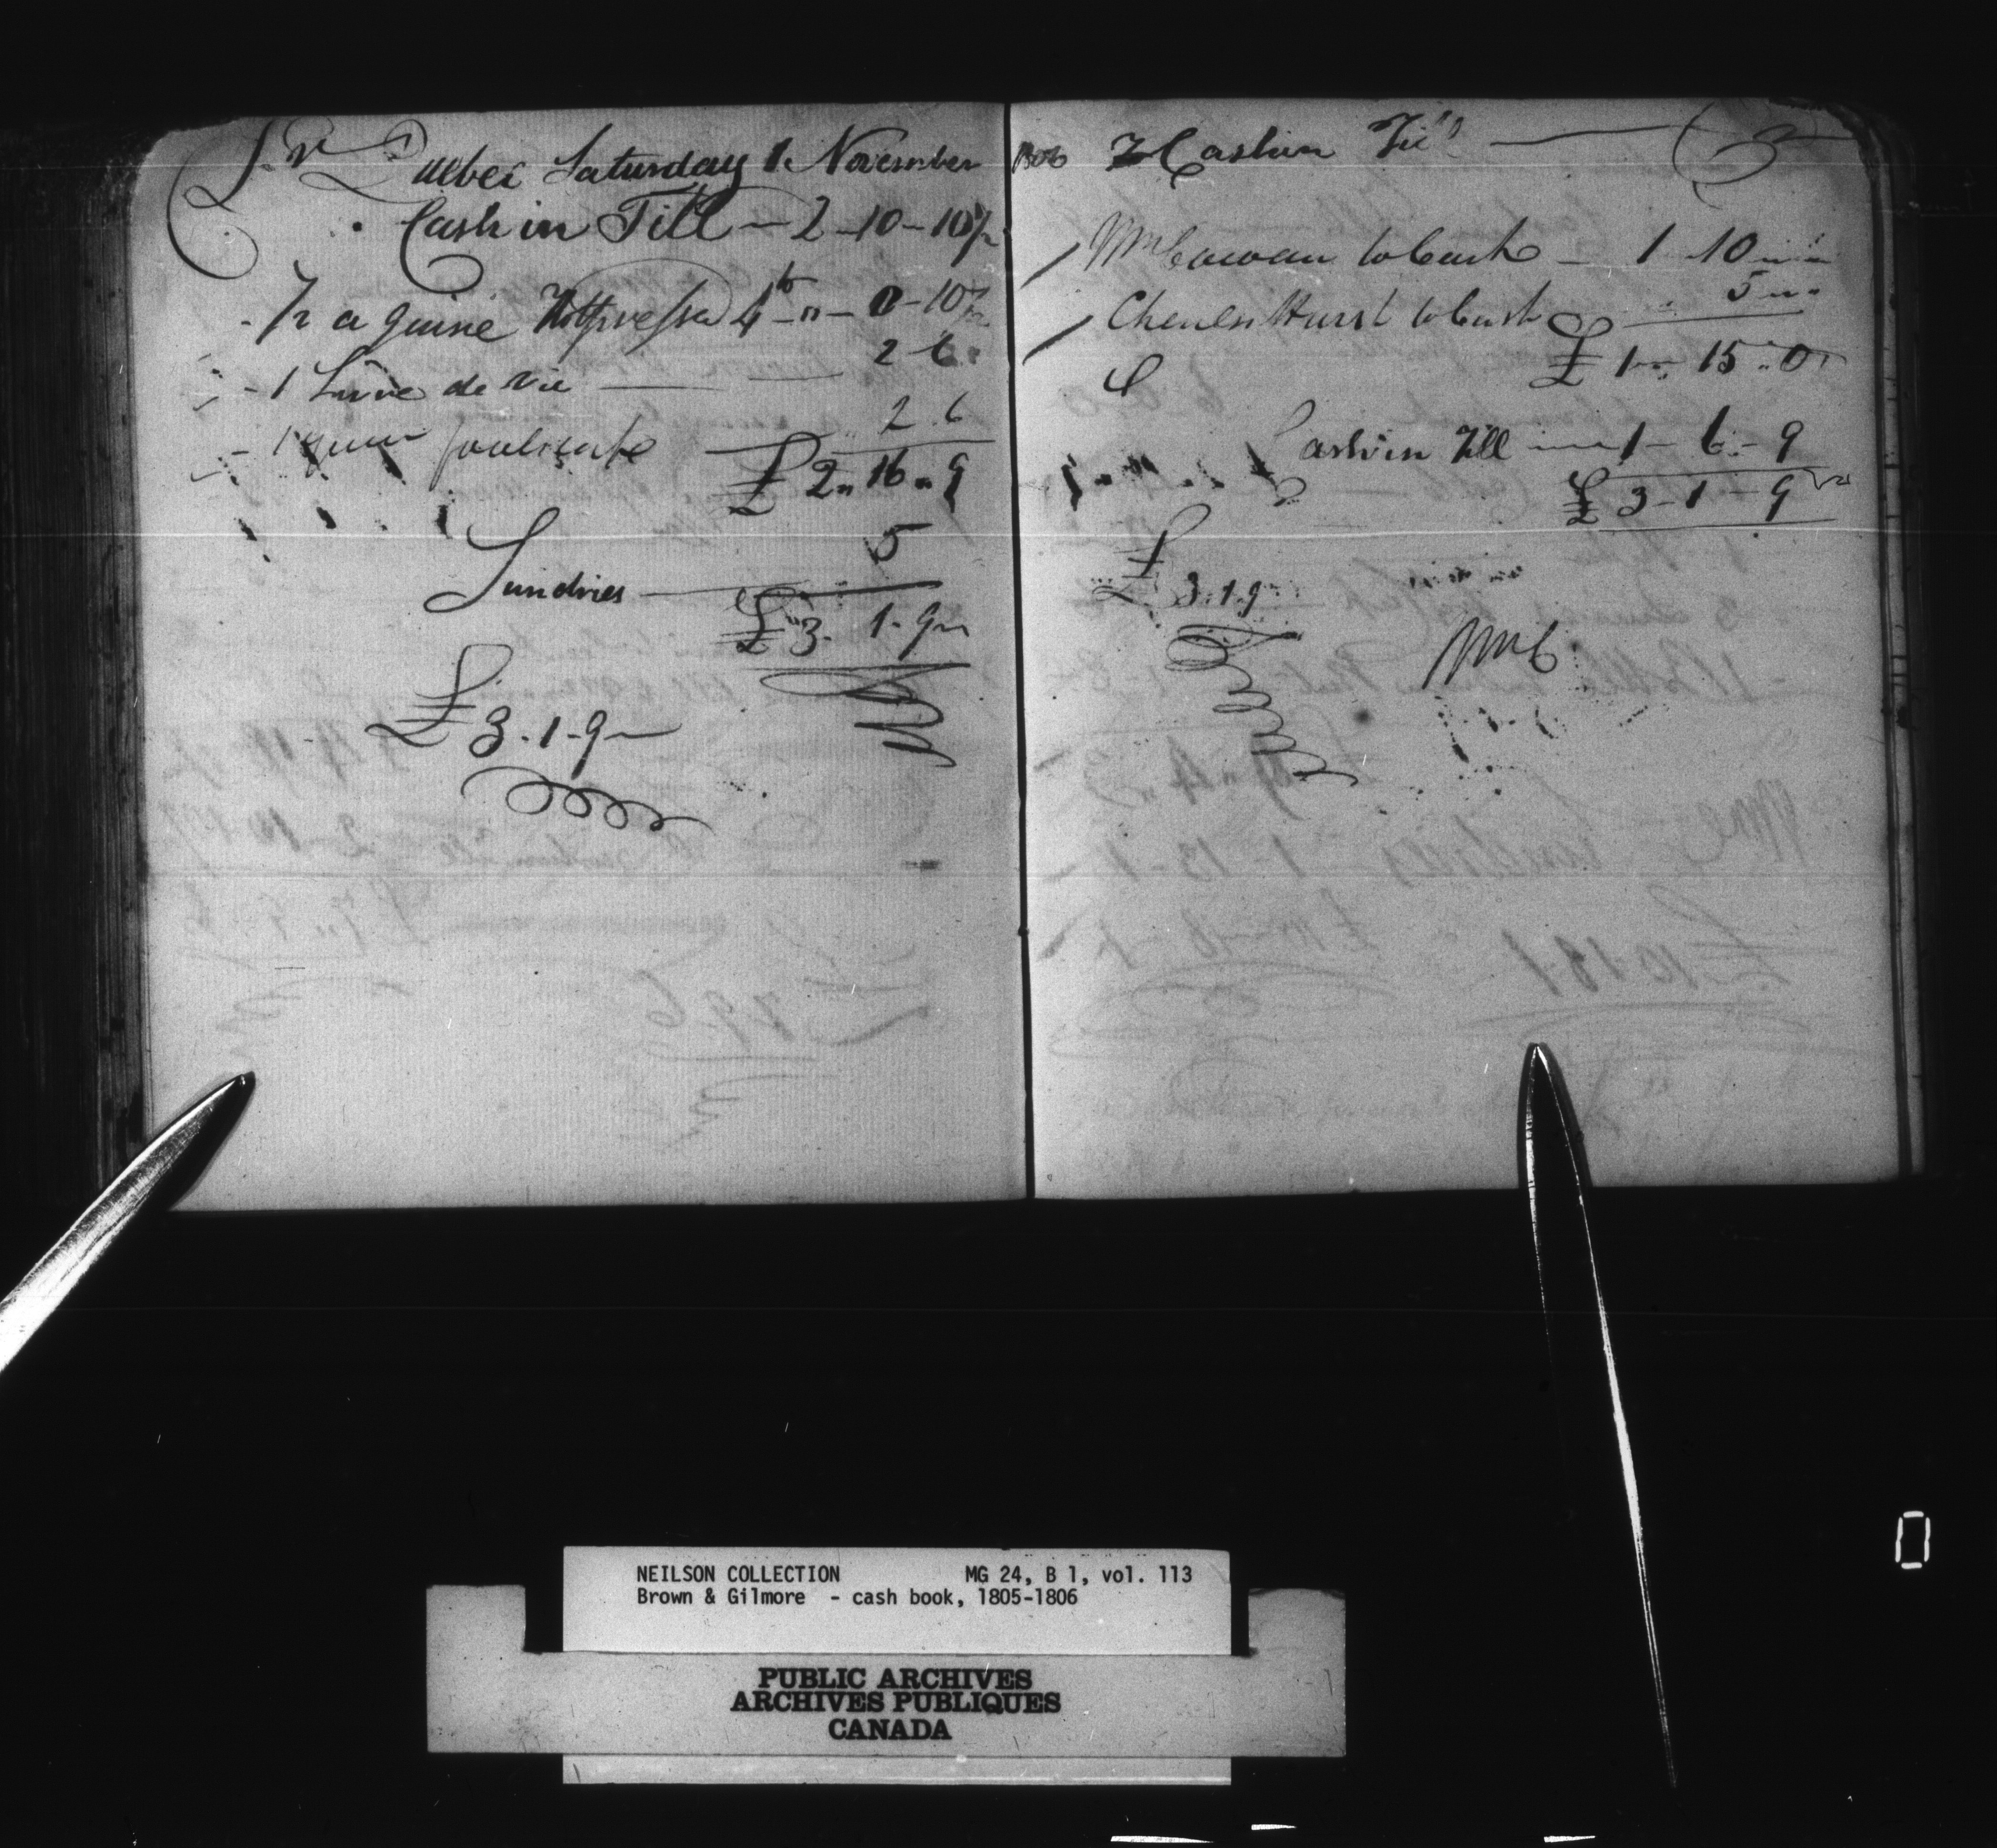 Dr Quebec Saturday 1. November
Cash in Till — 2 - 10 - 10½
½ a quire Hotpressed 4to " - 0 - 10½
1 Livre de vie — 2 - 6
1 — 2 . 6
£ 2 " 16 " 9
Sundries — 5
£ 3 . 1 - 9
£ 3 . 1 - 9
1806 Cash in Till
Wm Cowan to Cash — 1 10
Hurst to Cash 5
£ 1 " 15 " 0
Cash in Till — 1 - 6 - 9
£ 3 - 1 - 9
£ 3 . 1 . 9
WmC
NEILSON COLLECTION MG 24, B 1, vol. 113
Brown & Gilmore - cash book, 1805-1806
PUBLIC ARCHIVES
ARCHIVES PUBLIQUES
CANADA